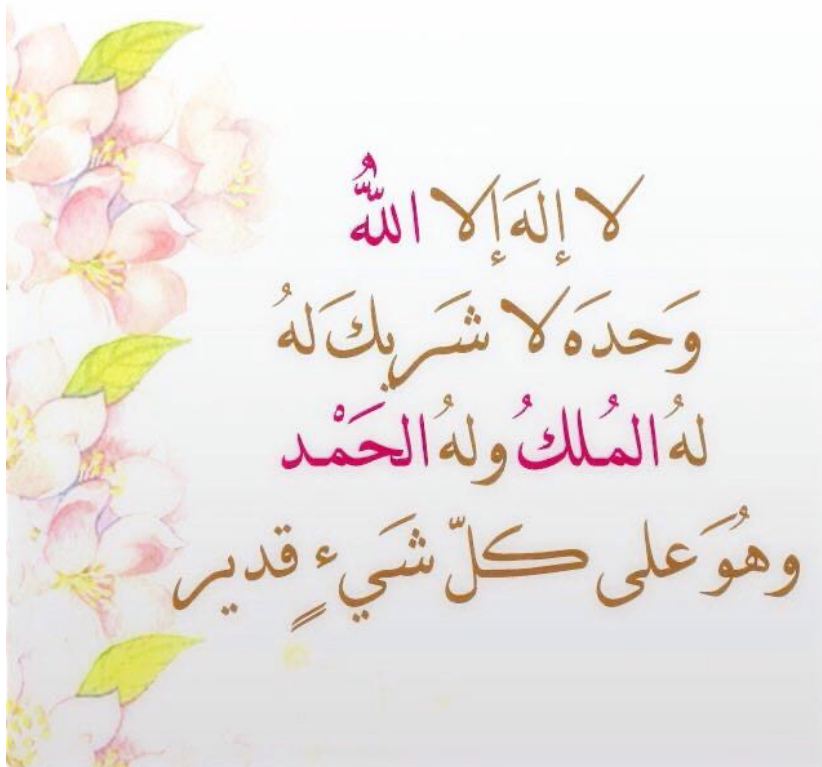 لا إله إلا اللهُ
وَحدَه لا شَريكَ لهُ
لهُ المُلكُ ولهُ الحَمْد
وهُوَ على كلّ شَيءٍ قدير